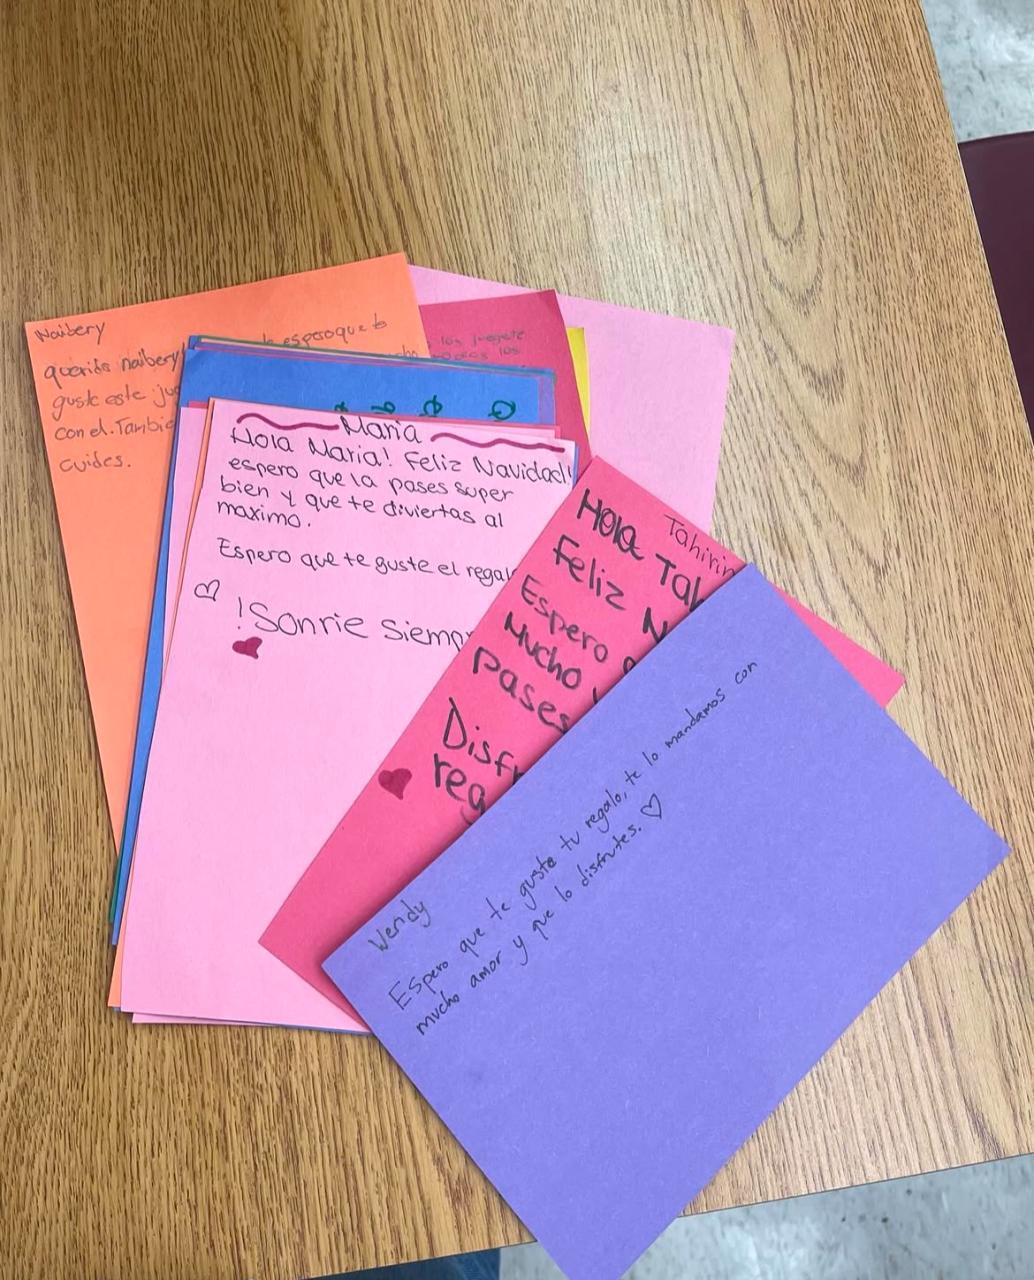 Naibery
querida naibery
espero que te
guste este jug
con el. Tambie
cuides.
los juegete
todos los
Maria
Hola Maria! Feliz Navidad!
espero que la pases super
bien y que te diviertas al
maximo.
Espero que te guste el regal
!Sonrie Siemp
Tahirin
Hola Tah
Feliz N
Espero
Mucho
pases
Disfr
reg
Wendy
Espero que te guste tu regalo, te lo mandamos con
mucho amor y que lo disfrutes.